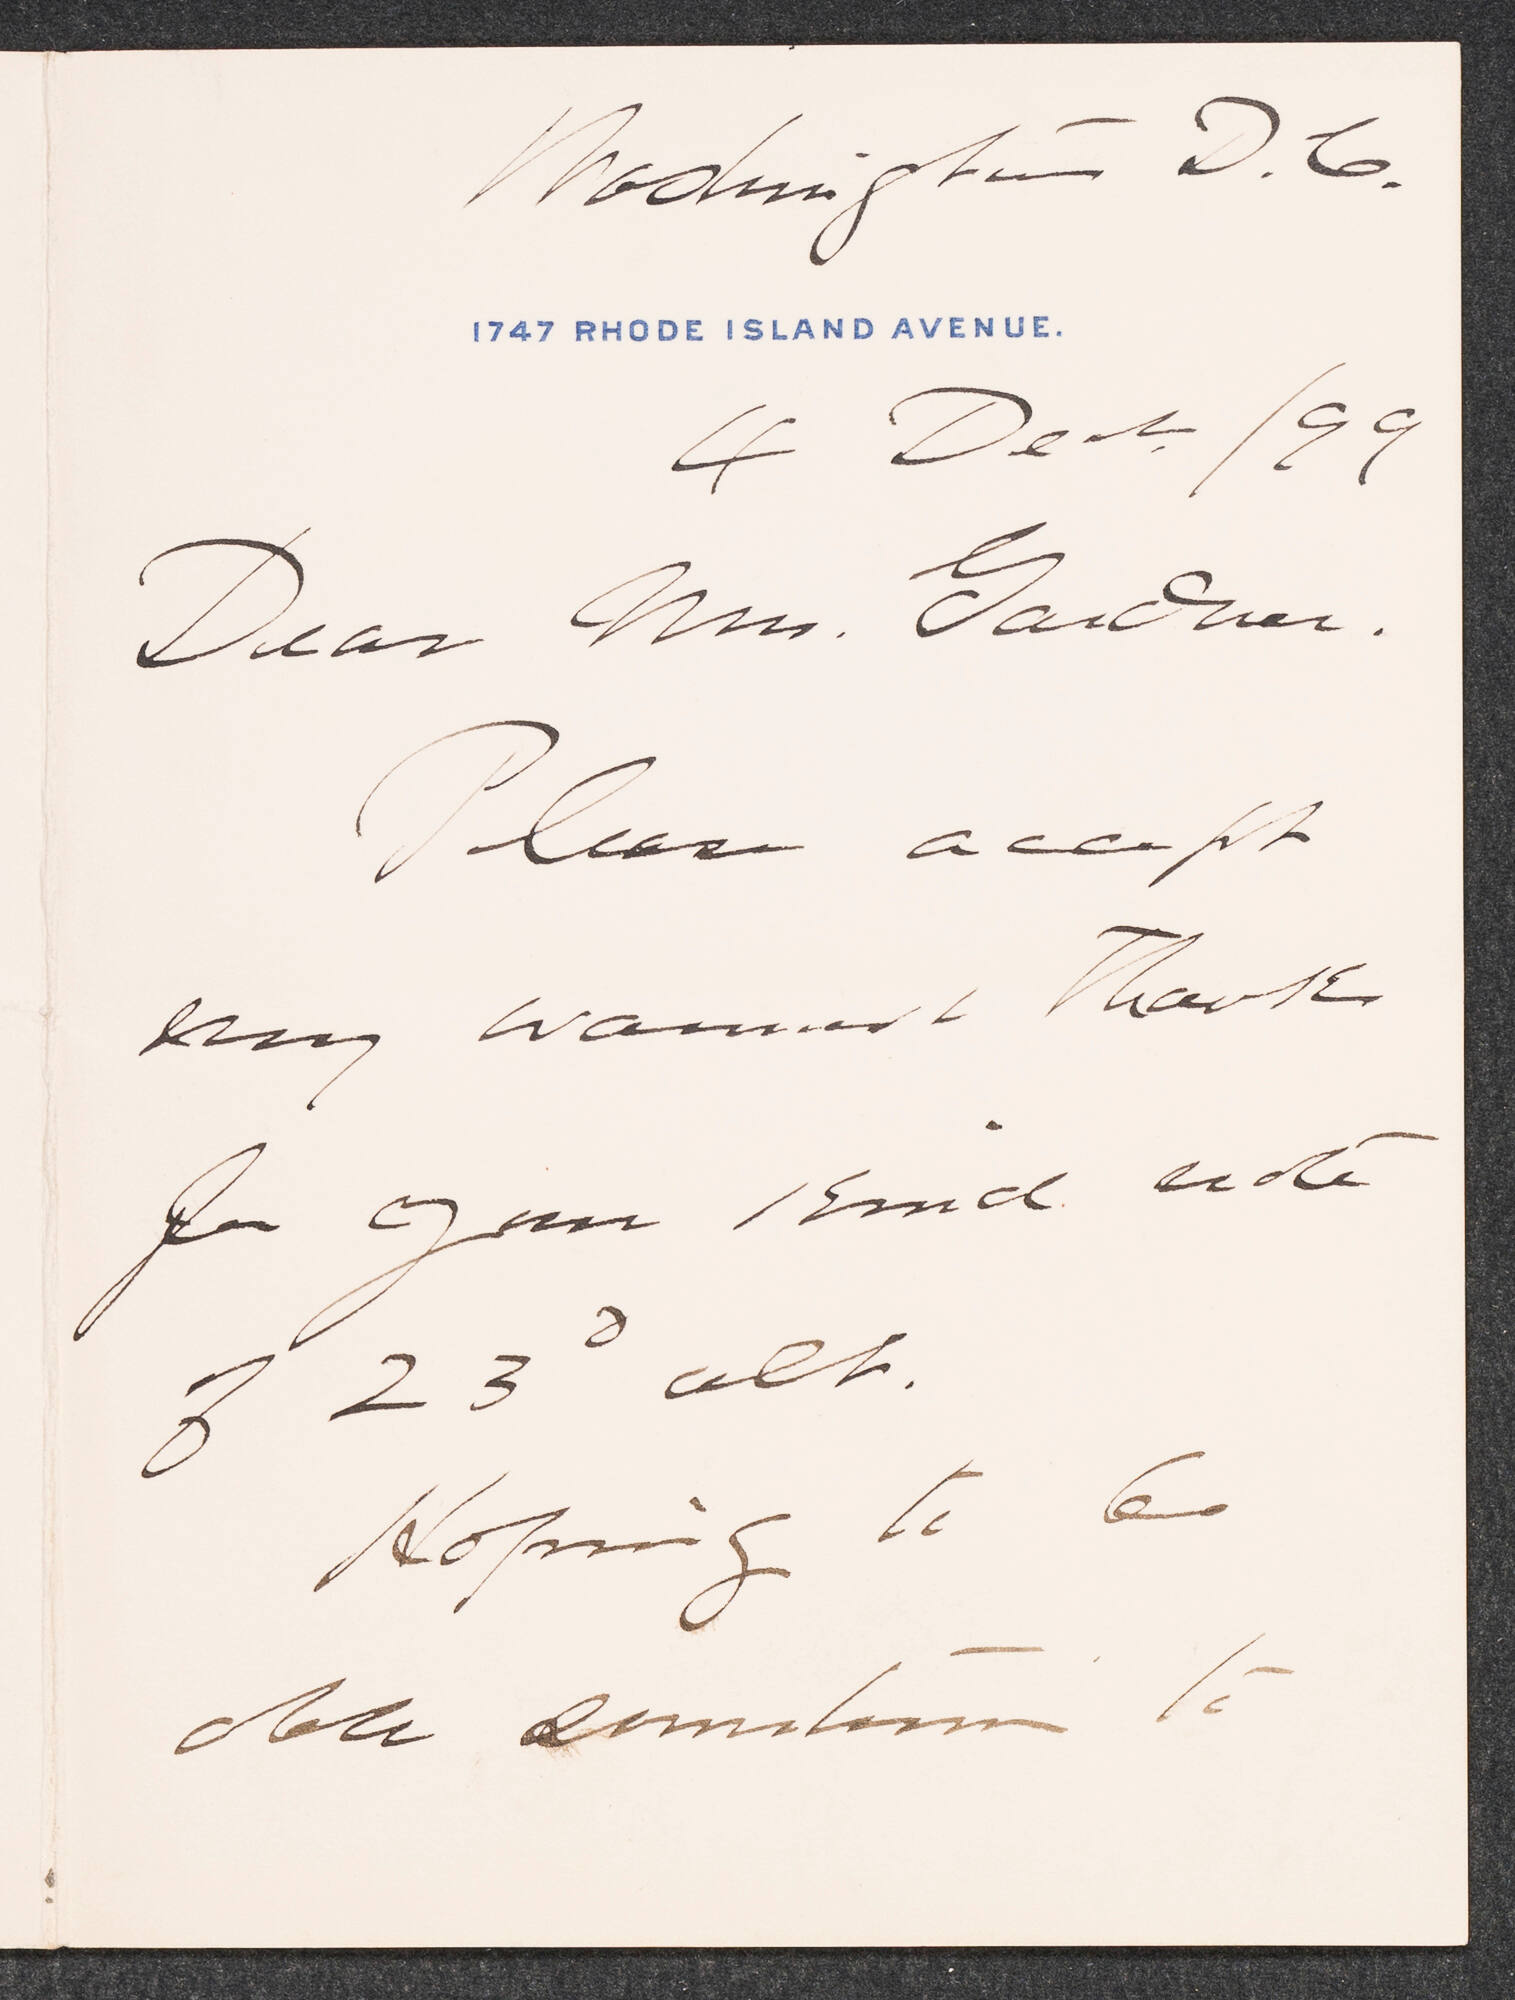 Washington D.C.
1747 RHODE ISLAND AVENUE.
4 Dec. /99
Dear Mrs. Gardner.
Please accept
my warmest thanks
for your kind note
of 23d ult.
Hoping to be
able sometime to